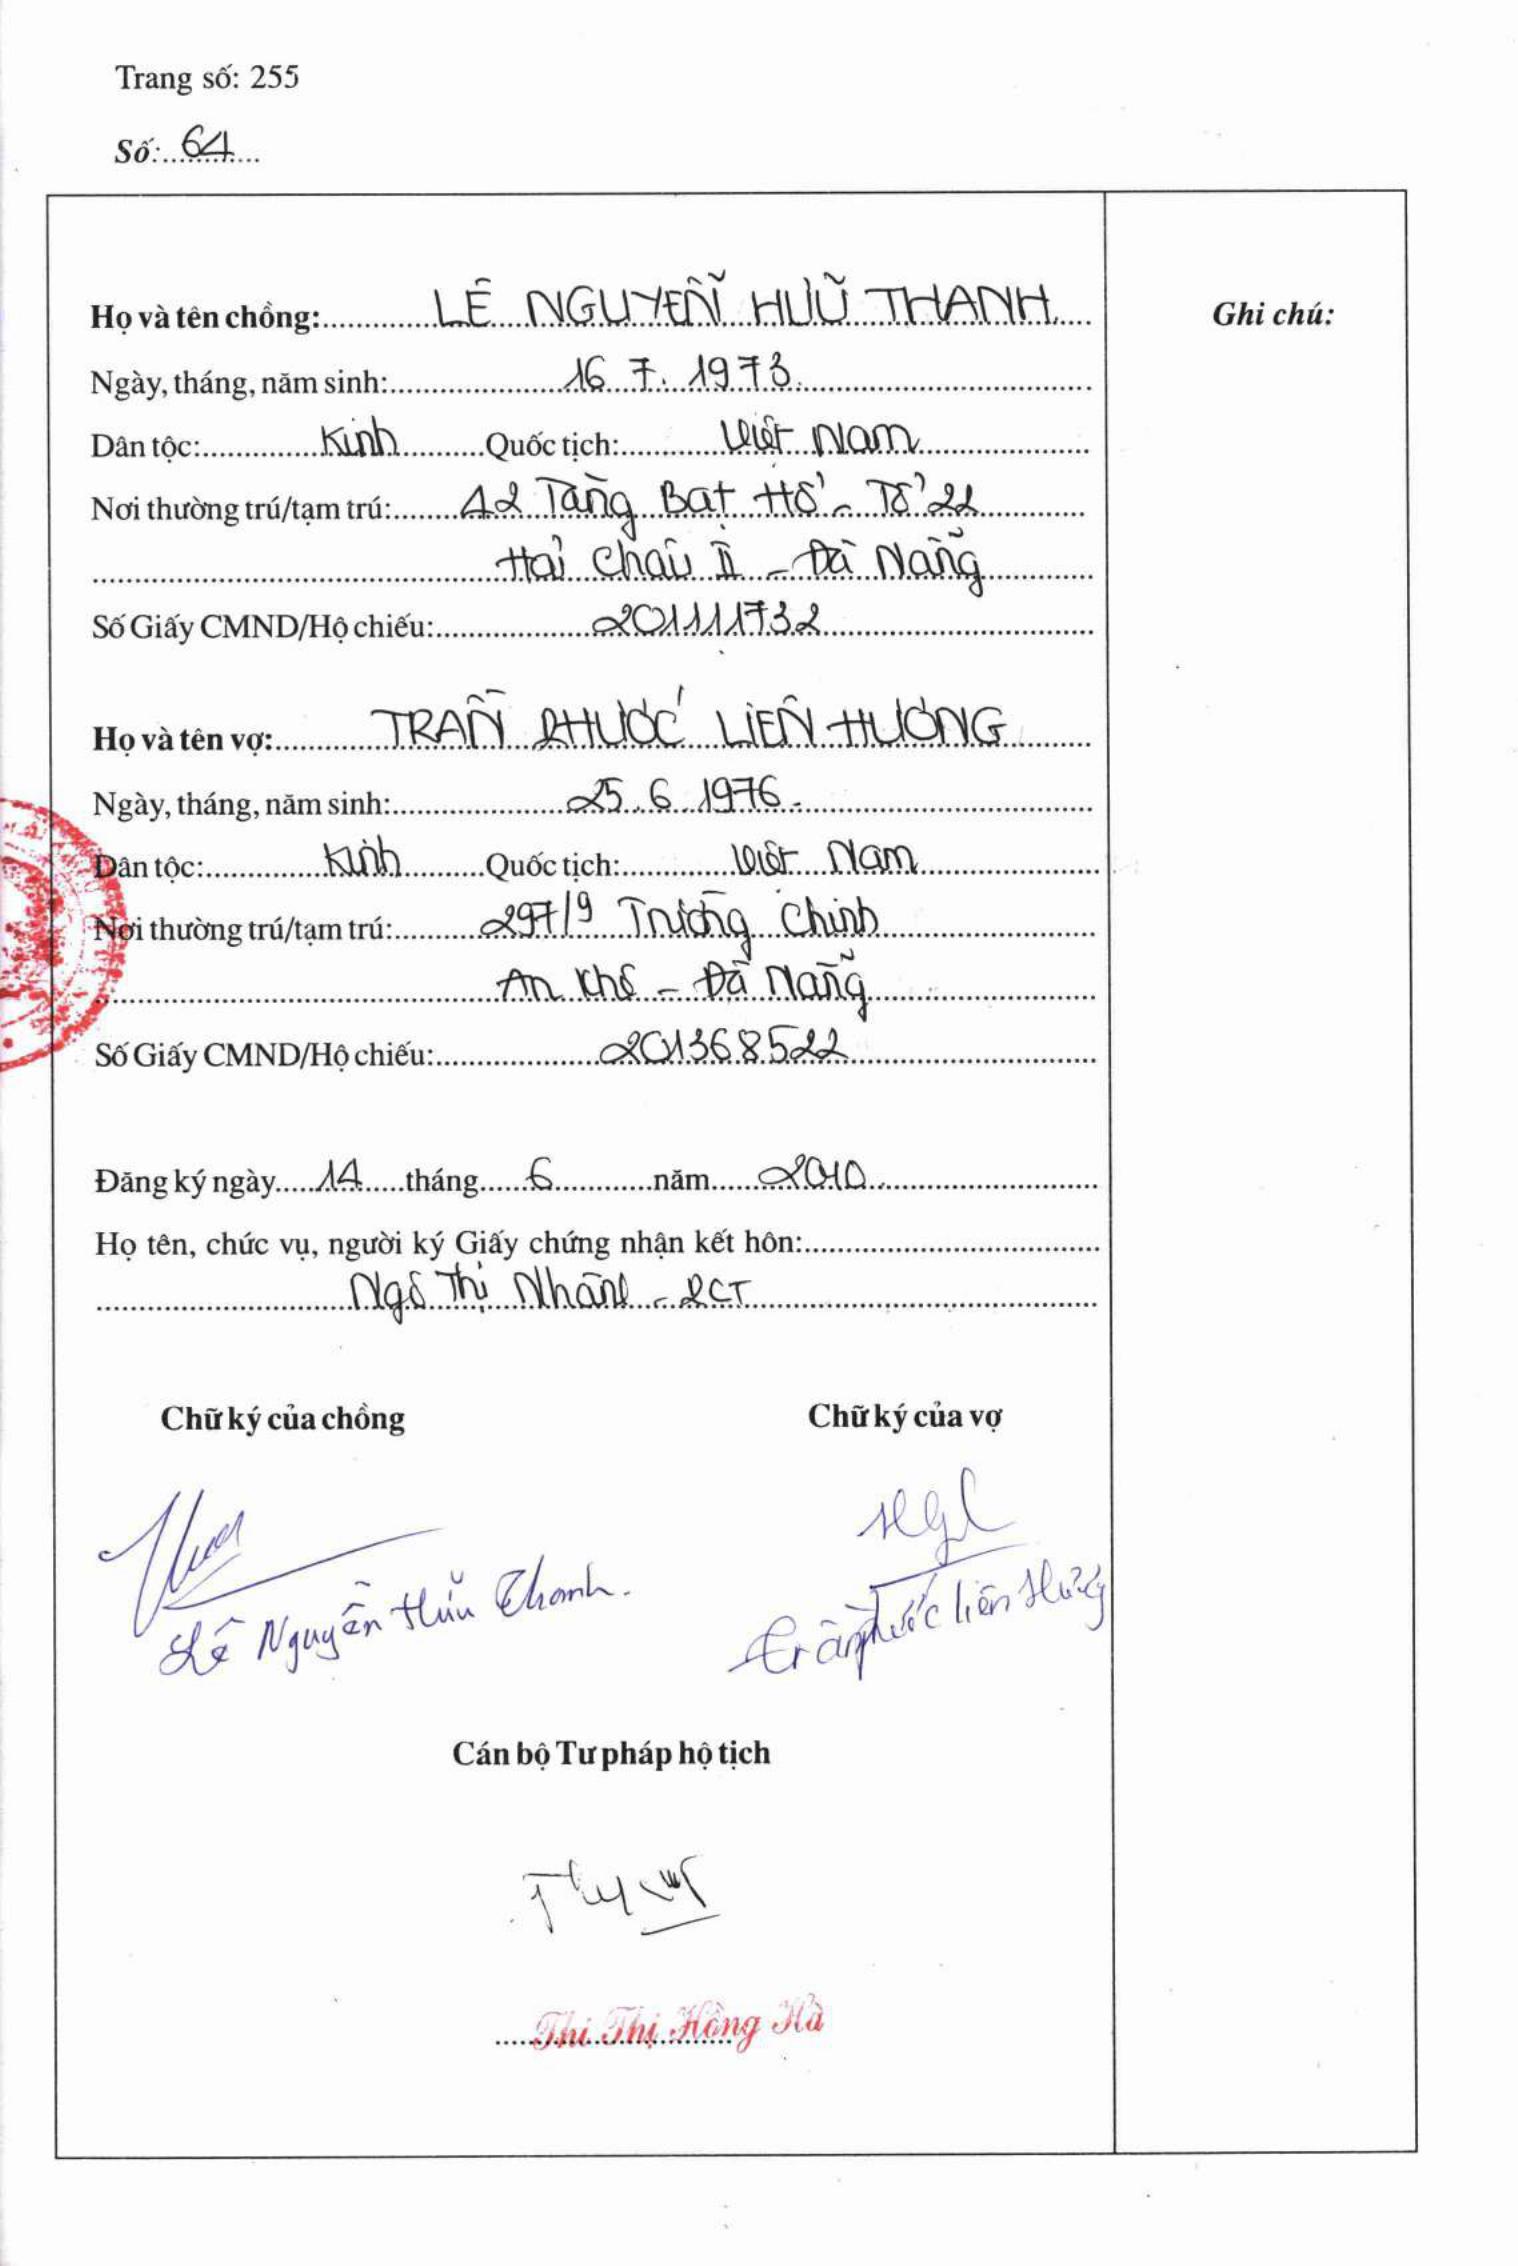 Trang số: 255
Số: 64
Họ và tên chồng: LÊ NGUYỄN HỮU THANH
Ghi chú:
Ngày, tháng, năm sinh: 16. 7. 1973
Dân tộc: Kinh Quốc tịch: Việt Nam
Nơi thường trú/tạm trú: 42 Tăng Bạt Hổ - Tổ 22
Hải Châu II - Đà Nẵng
Số Giấy CMND/Hộ chiếu: 201111732
Họ và tên vợ: TRẦN PHƯỚC LIÊN HƯƠNG
Ngày, tháng, năm sinh: 25. 6. 1976.
Dân tộc: Kinh Quốc tịch: Việt Nam
Nơi thường trú/tạm trú: 297/9 Trường Chinh
An Khê - Đà Nẵng
Số Giấy CMND/Hộ chiếu: 201368522
Đăng ký ngày 14 tháng 6 năm 2010
Họ tên, chức vụ, người ký Giấy chứng nhận kết hôn:
Ngô Thị - PCT
Chữ ký của chồng
Chữ ký của vợ
Lê Nguyễn Hữu Thanh.
Trần Phước Liên Hương
Cán bộ Tư pháp hộ tịch
Thi Thị Hồng Hà